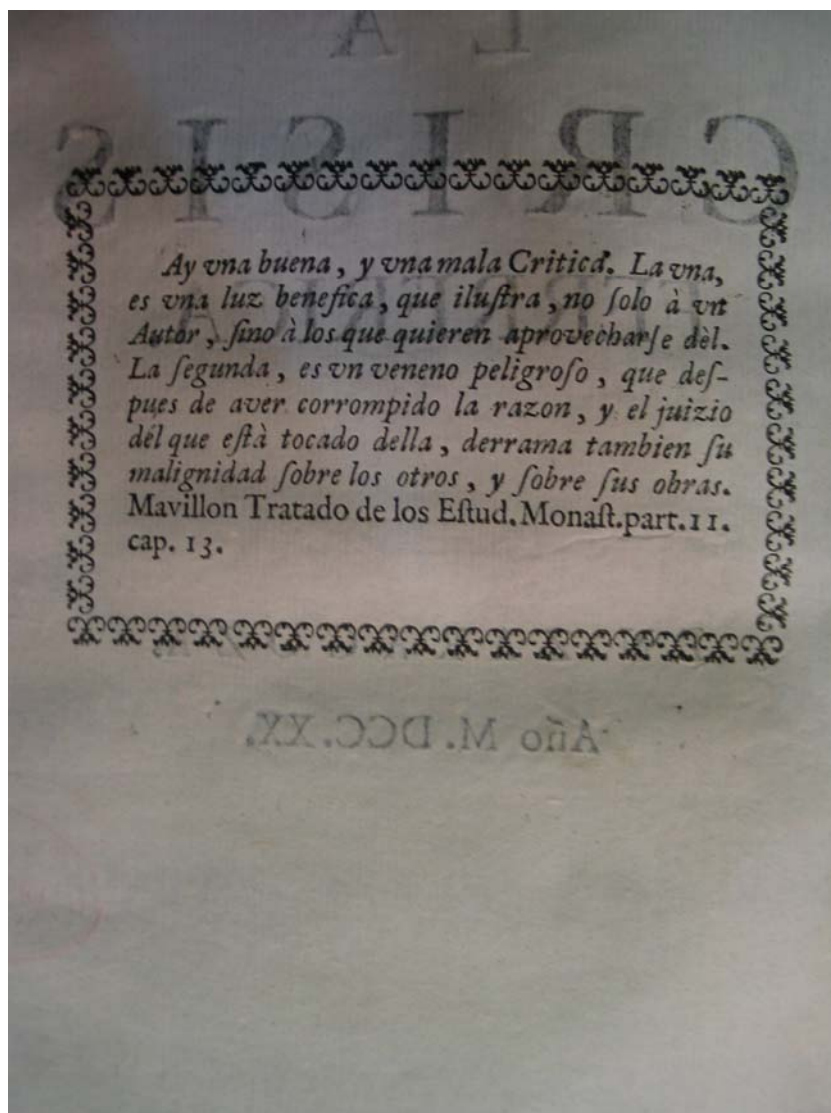 L A
CRISIS
Ay vna buena, y vna mala Critica. La vna,
es vna luz benefica, que iluſtra, no ſolo à vn
Autor, ſino à los que quieren aprovecharſe dèl.
La ſegunda, es vn veneno peligroſo, que deſ-
pues de aver corrompido la razon, y el juizio
dél que eſtà tocado della, derrama tambien ſu
malignidad ſobre los otros, y ſobre ſus obras.
Mavillon Tratado de los Eſtud. Monaſt. part. 11.
cap. 13.
Año M. DCC. XX.